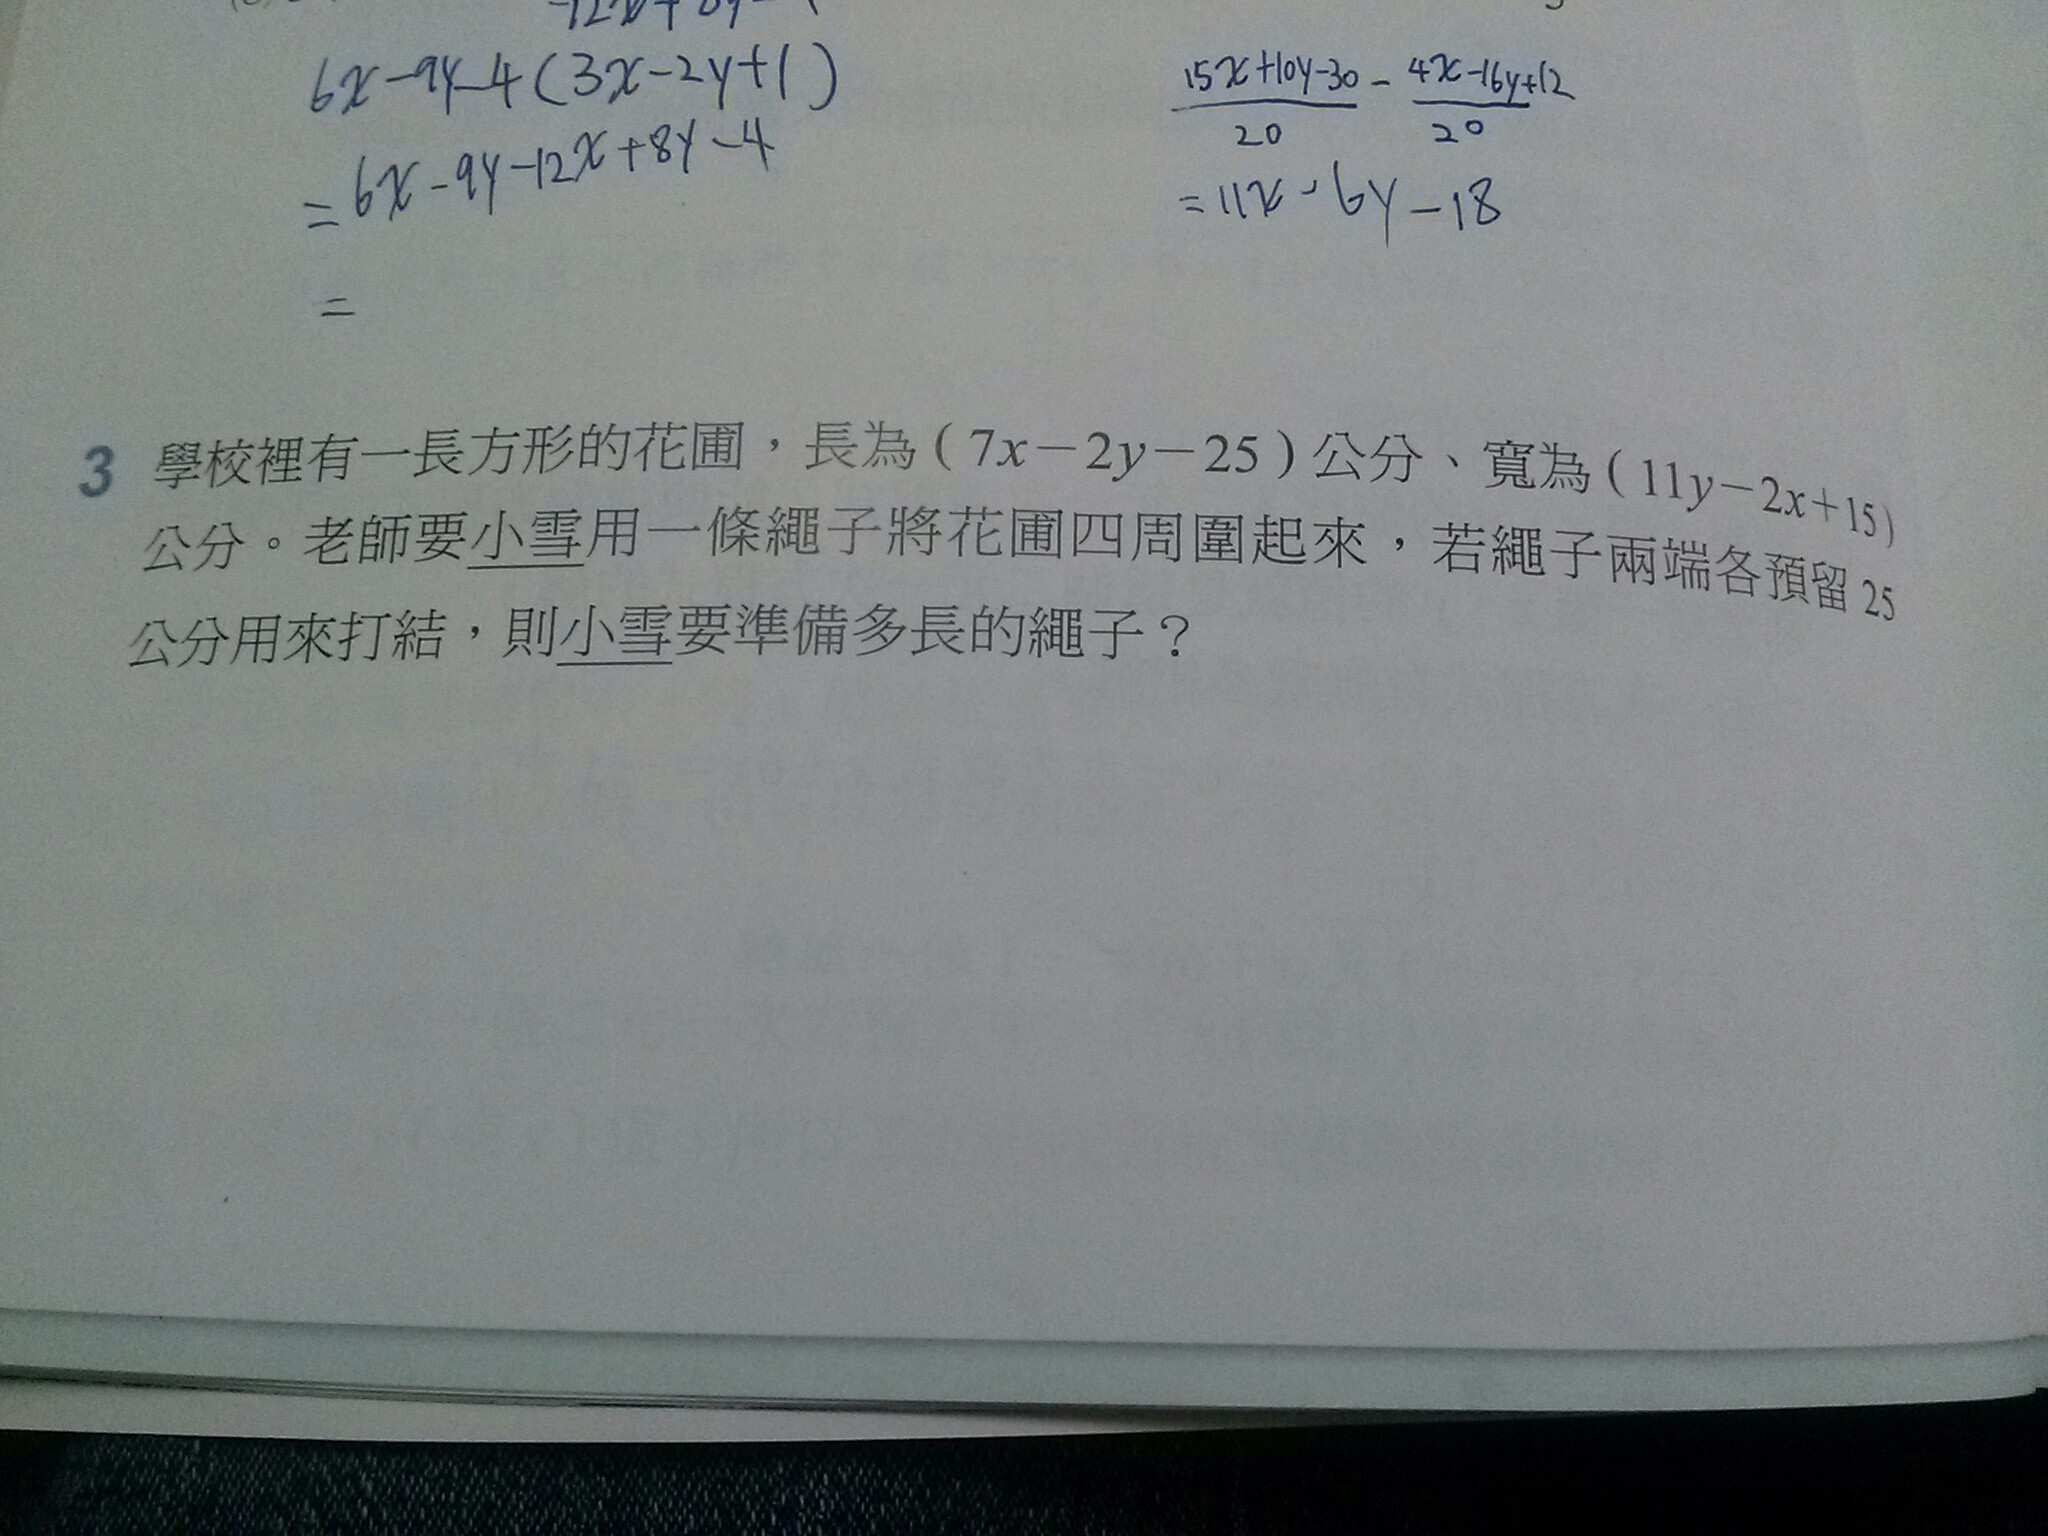 6x-9y-4(3x-2y+1)
15x+10y-30/20 - 4x-16y+12/20
=6x-9y-12x+8y-4
=11x-6y-18
=
3 學校裡有一長方形的花圃，長為(7x－2y－25)公分、寬為(11y－2x+15)
公分。老師要小雪用一條繩子將花圃四周圍起來，若繩子兩端各預留25
公分用來打結，則小雪要準備多長的繩子？